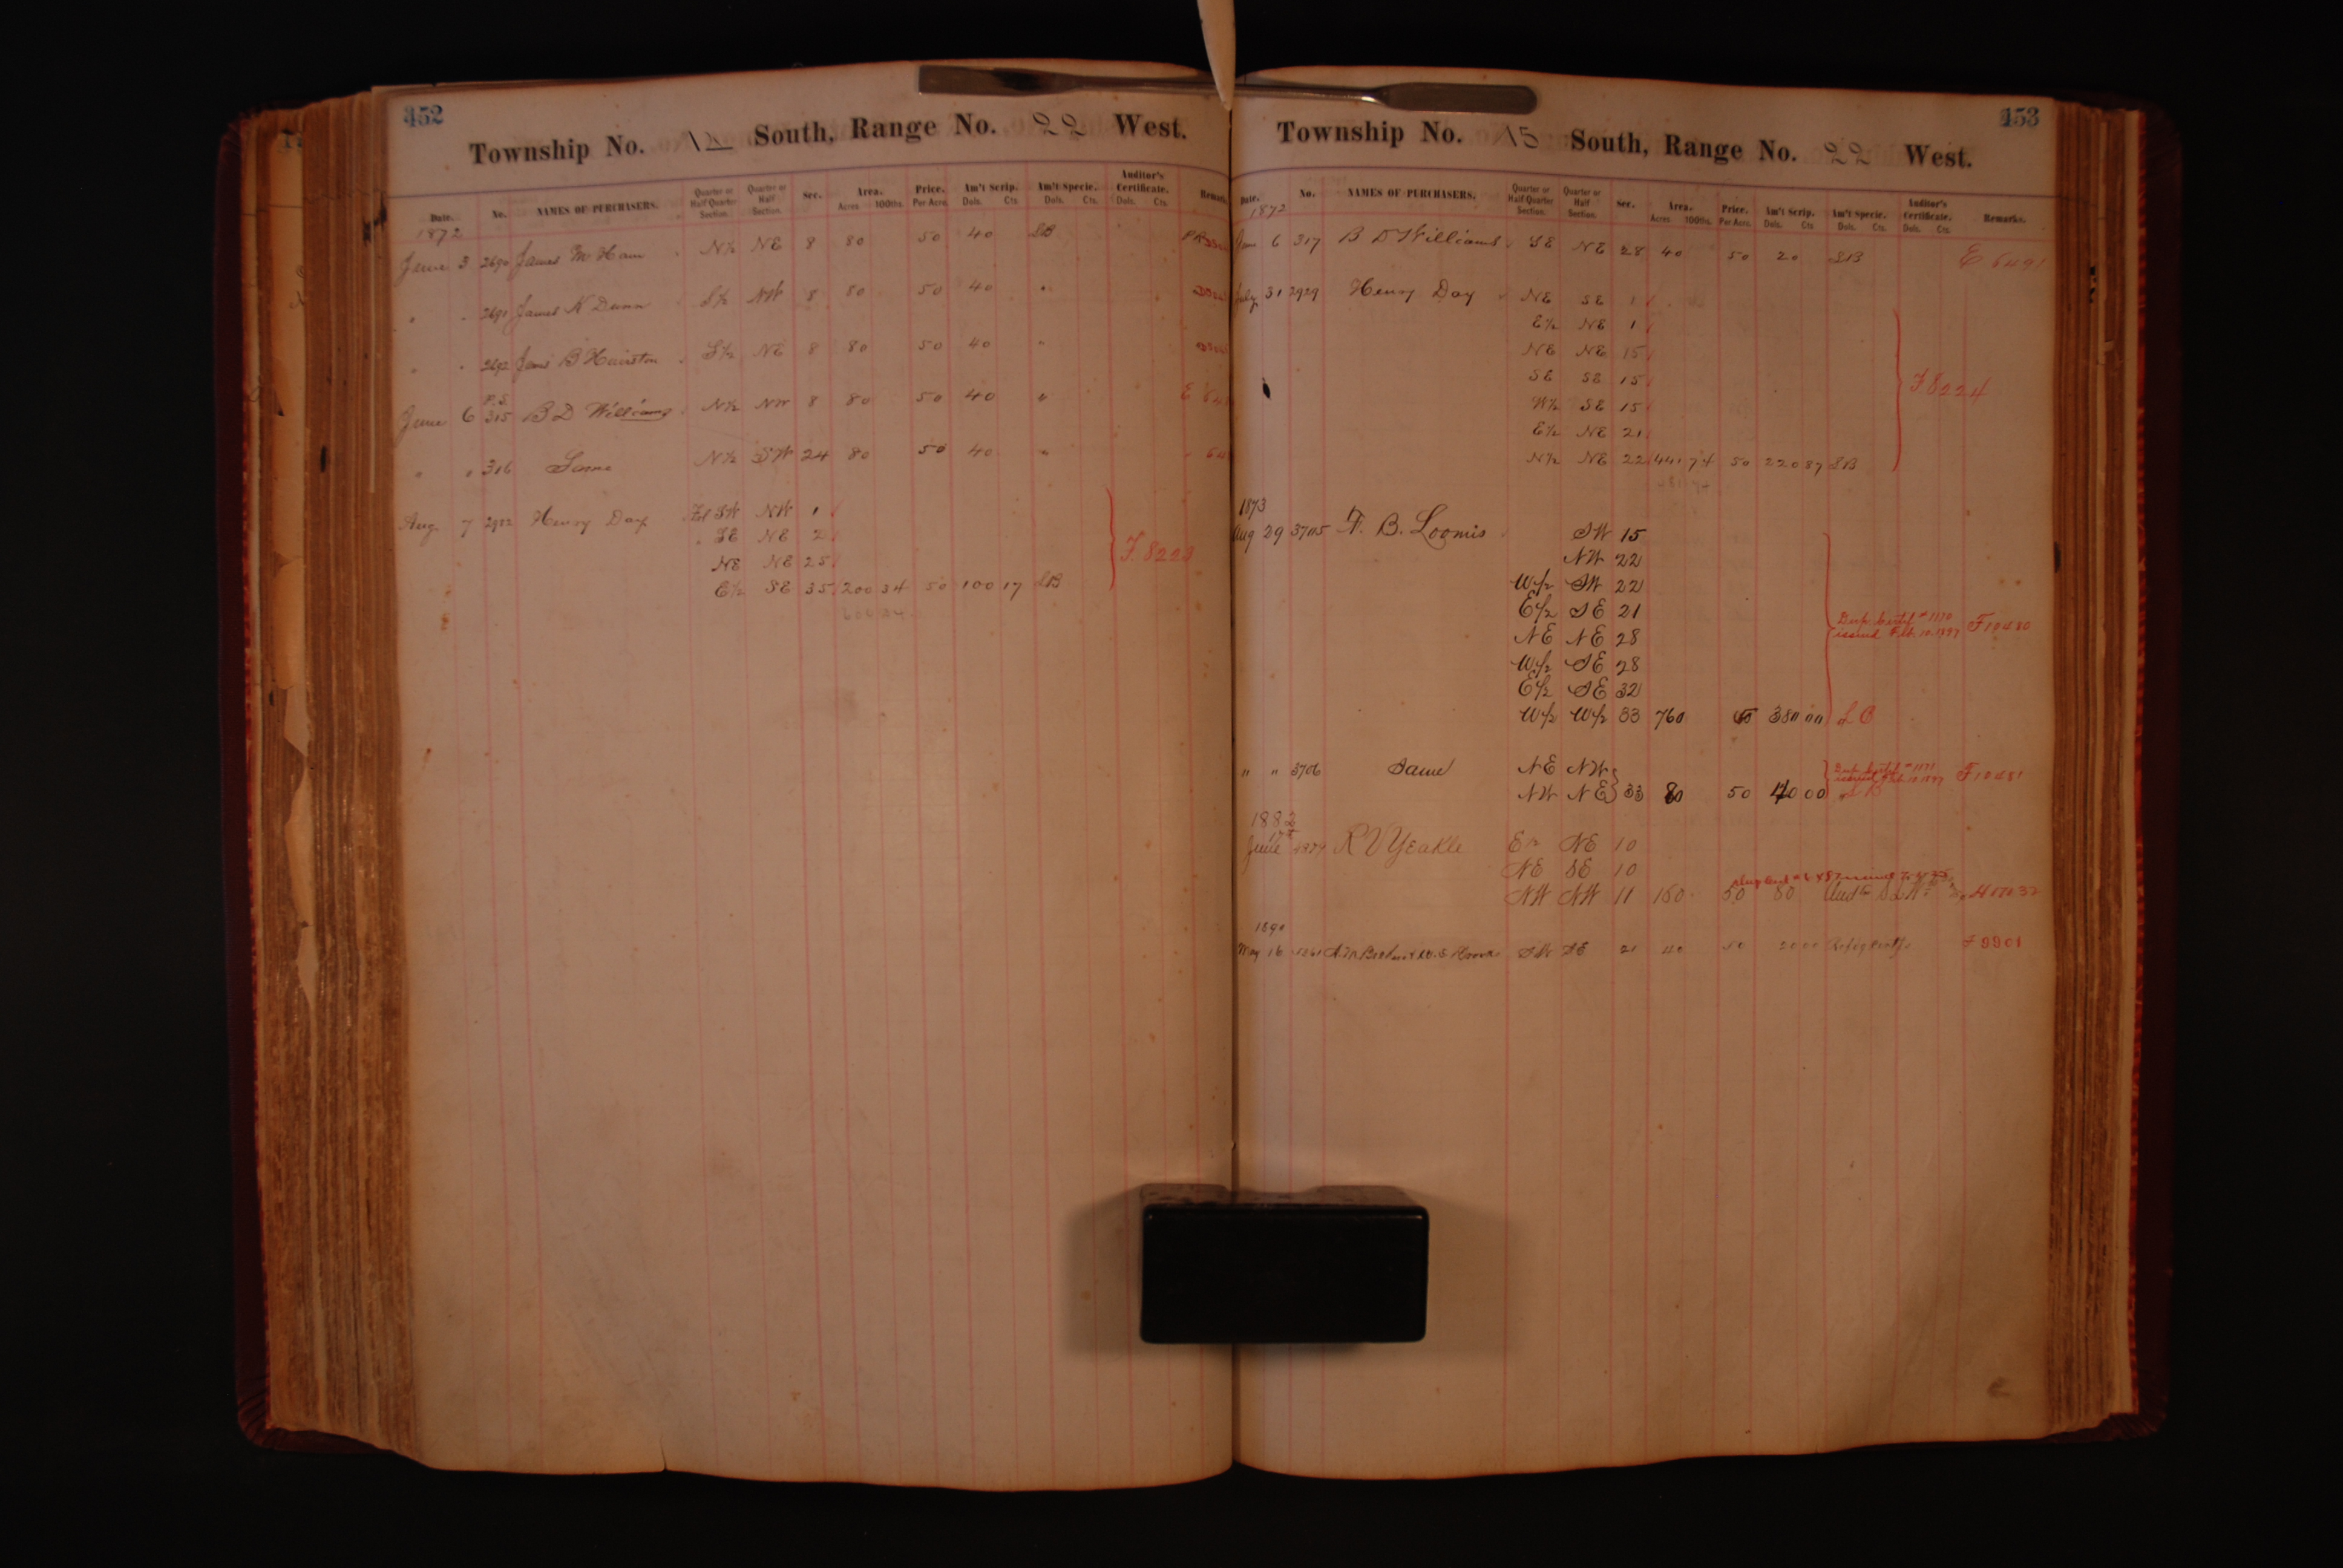 452
Township No. South, Range No. 22 West.
Date. No. NAMES OF PURCHASERS. Quarter or Half Quarter Section. Quarter or Half Section. Sec. Area. Acres 100ths. Price. Per Acre. Am't Scrip. Dols. Cts. Am't Specie. Dols. Cts. Auditor's Certificate. Dols. Cts. Remarks.
1872
June 3 2690 James M Ham N½ NE 8 80 50 40 SB
" " 2691 James N Dunn S½ NW 8 80 50 40 "
" " 2692 James B Hairston S½ NE 8 80 50 40 "
P.S.
June 6 315 B D Williams N½ NW 8 80 50 40 " E
" " 316 Same N½ SW 24 80 50 40 "
Aug 7 2922 Henry Day SW NW 1
" SE NE 2
NE NE 25
E½ SE 35 200 34 50 100 17 SB F 8223
453
Township No. 15 South, Range No. 22 West.
Date. No. NAMES OF PURCHASERS. Quarter or Half Quarter Section. Quarter or Half Section. Sec. Area. Acres 100ths. Price. Per Acre. Am't Scrip. Dols. Cts Am't Specie. Dols. Cts. Auditor's Certificate. Dols. Cts. Remarks.
1872
June 6 317 B D Williams SE NE 28 40 50 20 SB E 6491
July 31 2929 Henry Day NE SE 1
E½ NE 1
NE NE 15
SE SE 15 F 8224
W½ SE 15
E½ NE 21
N½ NE 22 441 74 50 220 87 SB
1873
Aug 29 3705 F. B. Loomis SW 15
NW 22
W½ SW 22
E½ SE 21 Dup. Certif # 1170
NE NE 28 issued Feb. 10. 1897 F 10480
W½ SE 28
E½ SE 32
W½ W½ 33 760 50 380 00
" " 3706 Same NE NW Dup. Certif # 1171 issued Feb. 10 1897 F 10481
NW NE 33 80 50 40 00 SB
1882
June 17th R V Yeakle E½ NE 10
NE SE 10
NW NW 11 160 50 80
1890
May 16 SW SE 21 40 50 20 00 F 9901